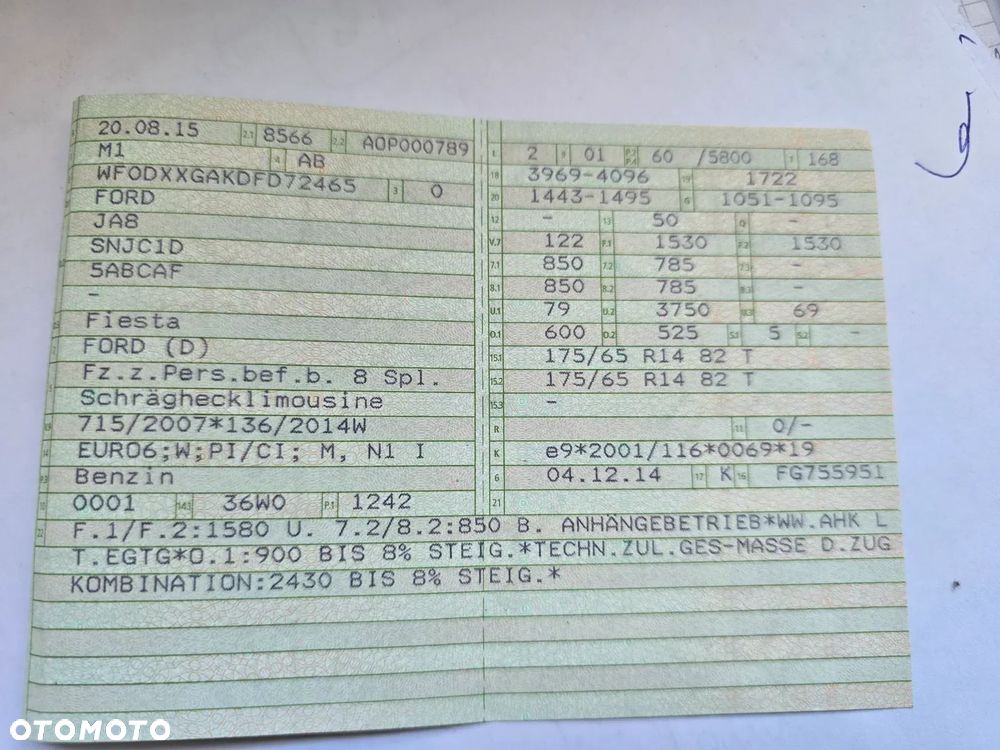 20.08.15 2.1 8566 2.2 A0P000789
M1 4 AB
WF0DXXGAKDFD72465 3 0
FORD
JA8
SNJC1D
5ABCAF
-
Fiesta
FORD (D)
Fz.z.Pers.bef.b. 8 Spl.
Schräghecklimousine
715/2007*136/2014W
EURO6;W;PI/CI; M, N1 I
Benzin
0001 14.1 36W0 P.1 1242
L 2 9 01 P.2 P.4 60 /5800 T 168
18 3969-4096 19 1722
20 1443-1495 G 1051-1095
12 - 13 50 Q -
V.7 122 F.1 1530 F.2 1530
7.1 850 7.2 785 7.3 -
8.1 850 8.2 785 8.3 -
U.1 79 U.2 3750 U.3 69
O.1 600 O.2 525 S.1 5 S.2 -
15.1 175/65 R14 82 T
15.2 175/65 R14 82 T
15.3 -
R 11 0/-
K e9*2001/116*0069*19
6 04.12.14 17 K 16 FG755951
21
22 F.1/F.2:1580 U. 7.2/8.2:850 B. ANHÄNGEBETRIEB*WW.AHK L
T.EGTG*O.1:900 BIS 8% STEIG.*TECHN.ZUL.GES-MASSE D.ZUG
KOMBINATION:2430 BIS 8% STEIG.*
OTOMOTO